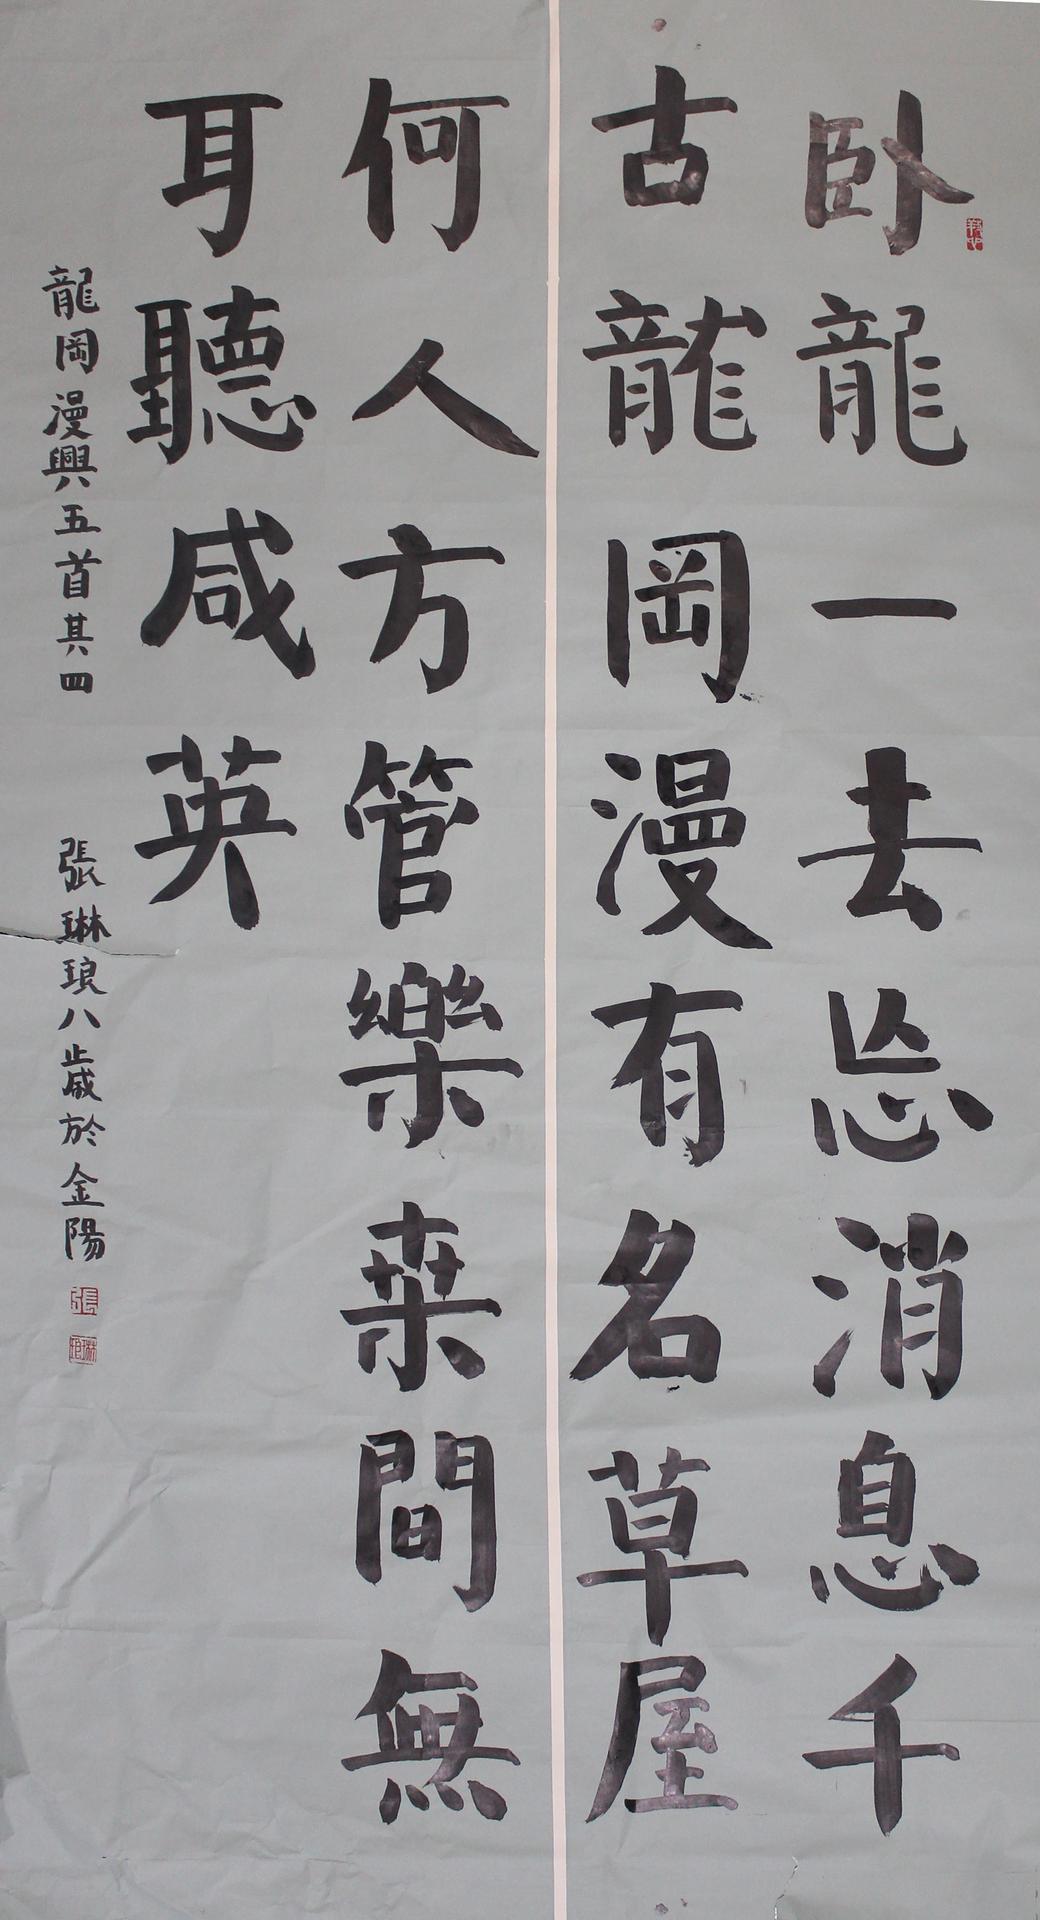 卧龍一去忘消息千
古龍岡漫有名草屋
何人方管樂桒間無
耳聽咸英
龍岡漫興五首其四 張琳琅八歲於金陽
張
琳琅